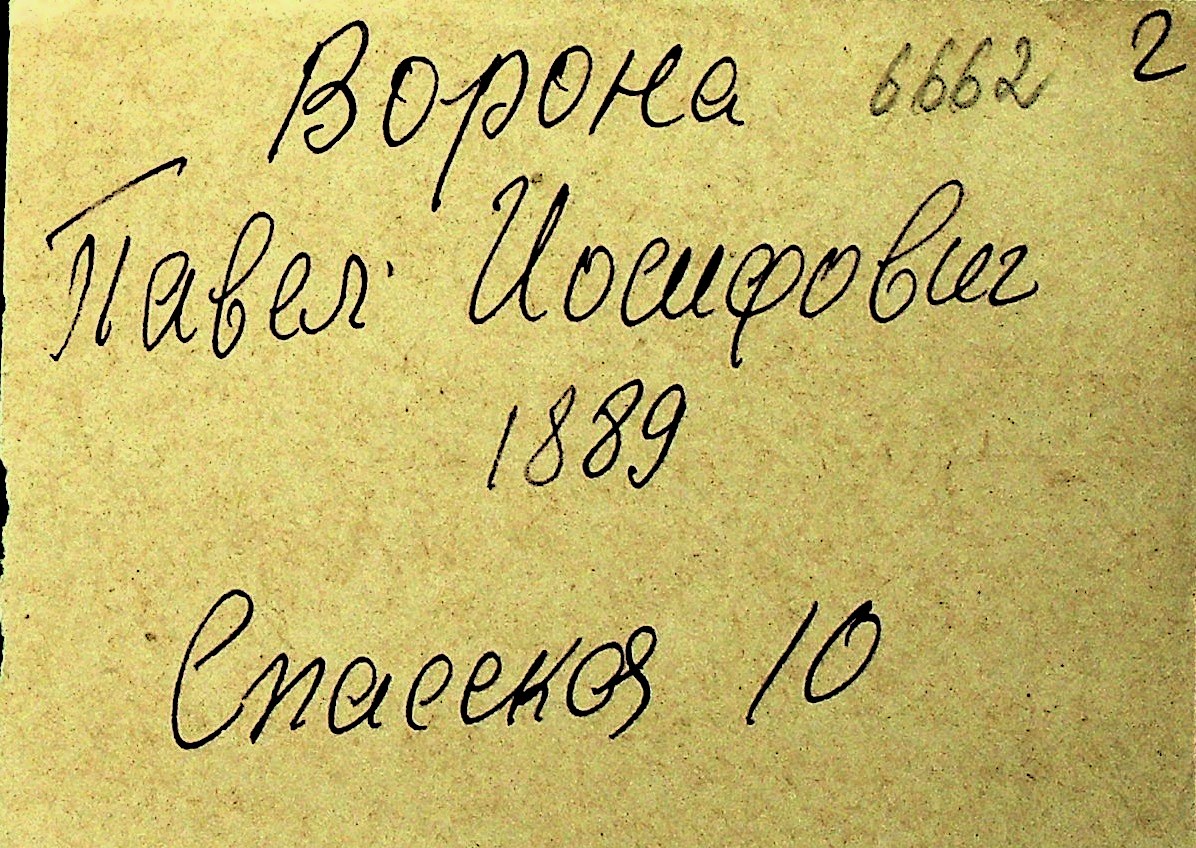 Ворона 6662 2
Павел Иосифович
1889
Спасская 10